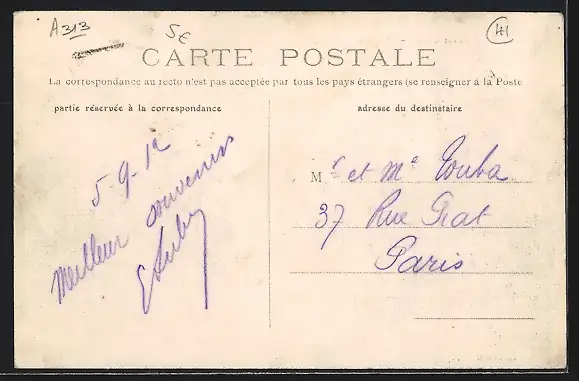 A 313
5€
41
CARTE POSTALE
La correspondance au recto n'est pas acceptée par tous les pays étrangers (se renseigner à la Poste
partie réservée à la correspondance
adresse du destinataire
5-9-12
Meilleur souvenirs
Mr et Me Touba
37 Rue Piat
Paris